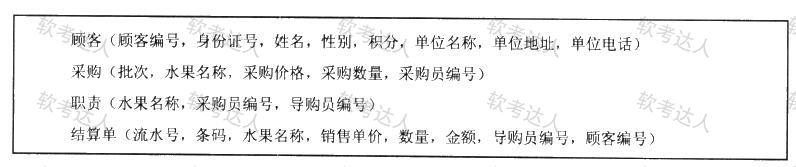 顾客（顾客编号，身份证号，姓名，性别，积分，单位名称，单位地址，单位电话）
采购（批次，水果名称，采购价格，采购数量，采购员编号）
职责（水果名称，采购员编号，导购员编号）
结算单（流水号，条码，水果名称，销售单价，数量，金额，导购员编号，顾客编号）
软考达人
软考达人
软考达人
软考达人
软考达人
软考达人
软考达人
软考达人